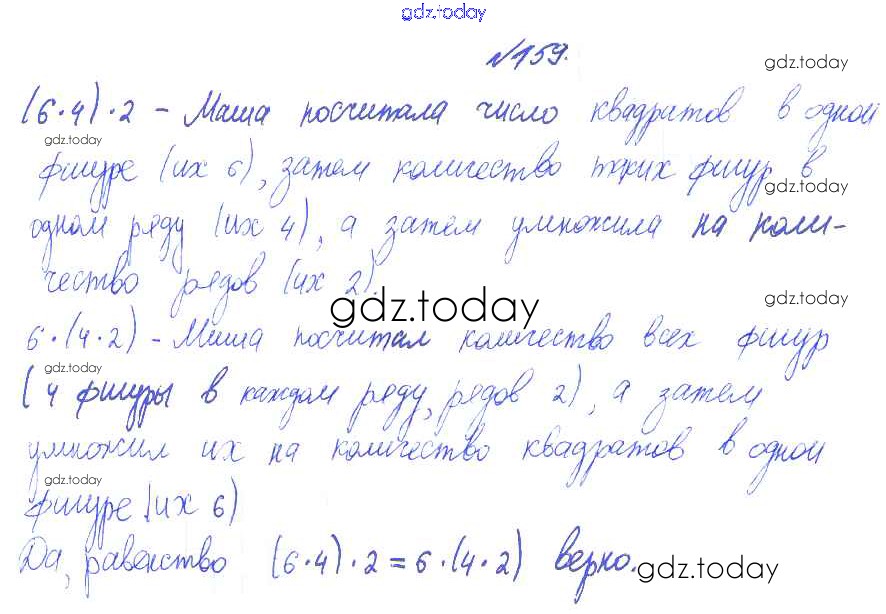 gdz.today
№159.
gdz.today
(6·4)·2 - Маша посчитала число квадратов в одной
gdz.today
фигуре (их 6), затем количество таких фигур в
gdz.today
одном ряду (их 4), а затем умножила на коли-
чество рядов (их 2).
gdz.today
gdz.today
6·(4·2) - Миша посчитал количество всех фигур
gdz.today
(4 фигуры в каждом ряду, рядов 2), а затем
умножил их на количество квадратов в одной
gdz.today
фигуре (их 6)
Да, равенство (6·4)·2=6·(4·2) верно.
gdz.today